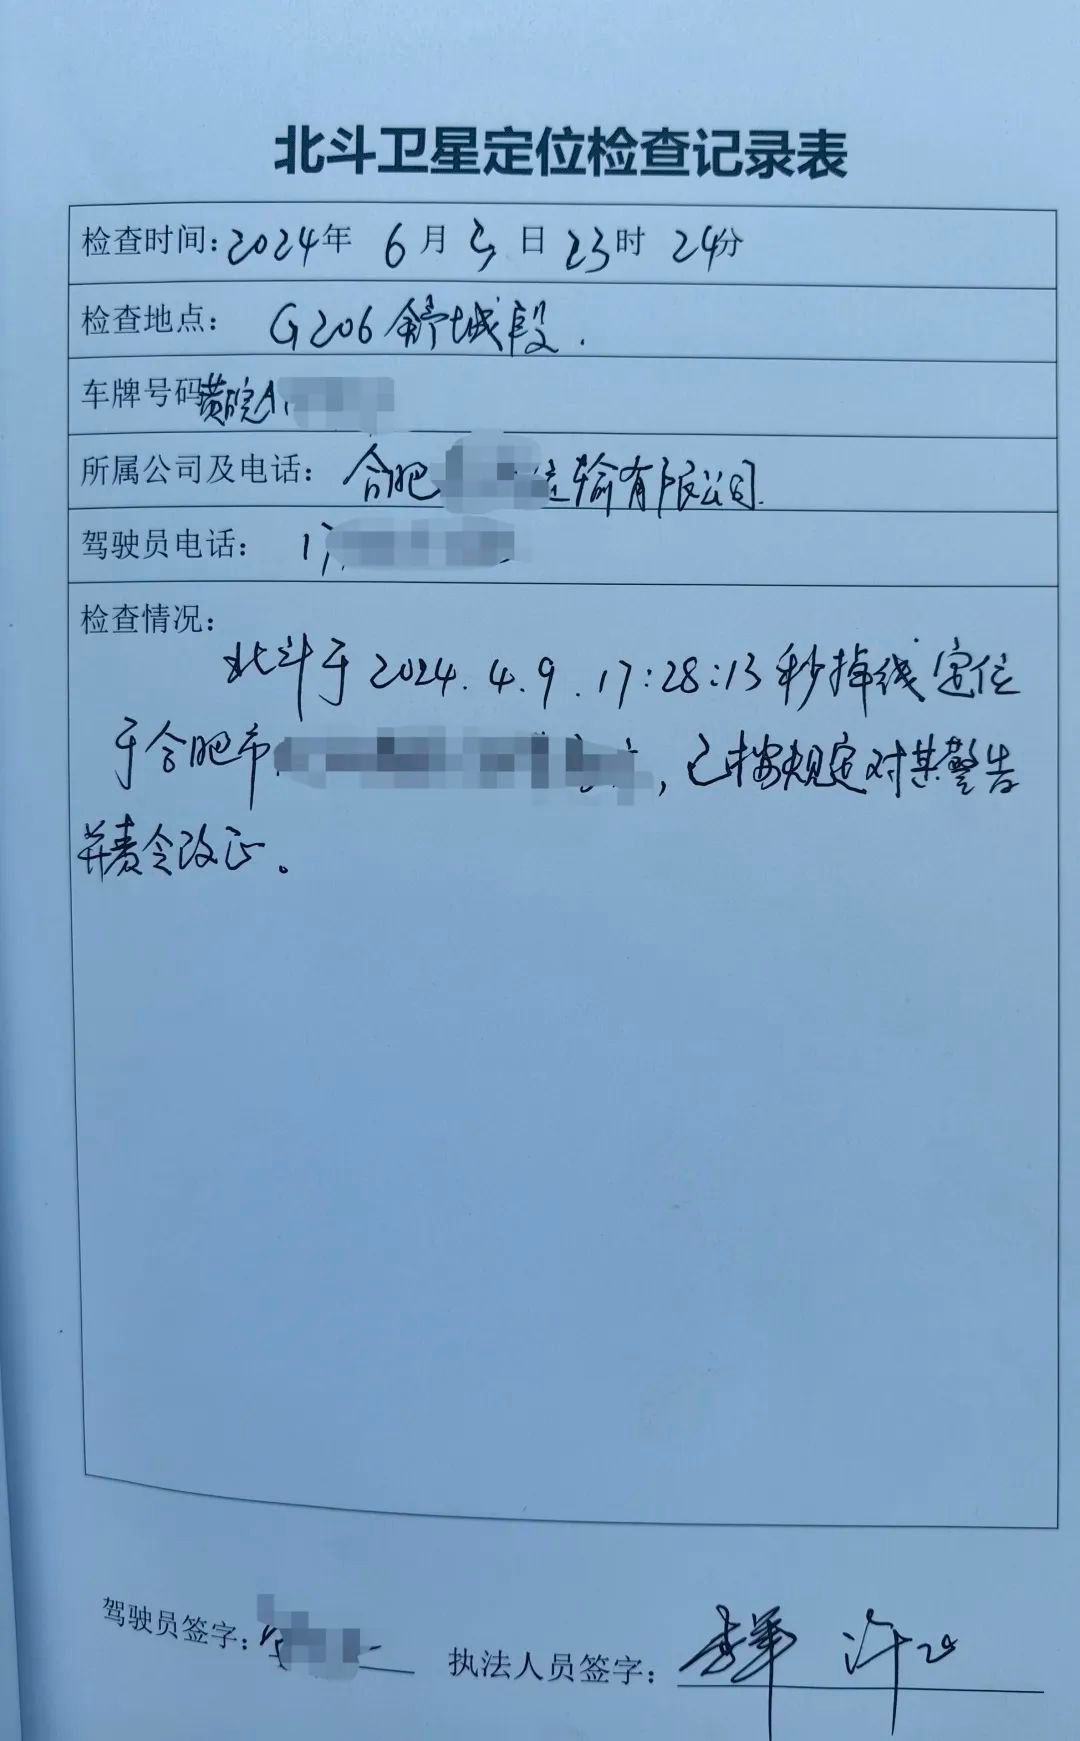 北斗卫星定位检查记录表
检查时间：2024年 6月 日 23时 24分
检查地点： G206舒城段.
车牌号码 黄皖A
所属公司及电话： 合肥 运输有限公司.
驾驶员电话： 1
检查情况：
北斗于2024.4.9.17:28:13秒掉线定位
于合肥市 ，已按规定对其警告
并责令改正。
驾驶员签字：
执法人员签字：